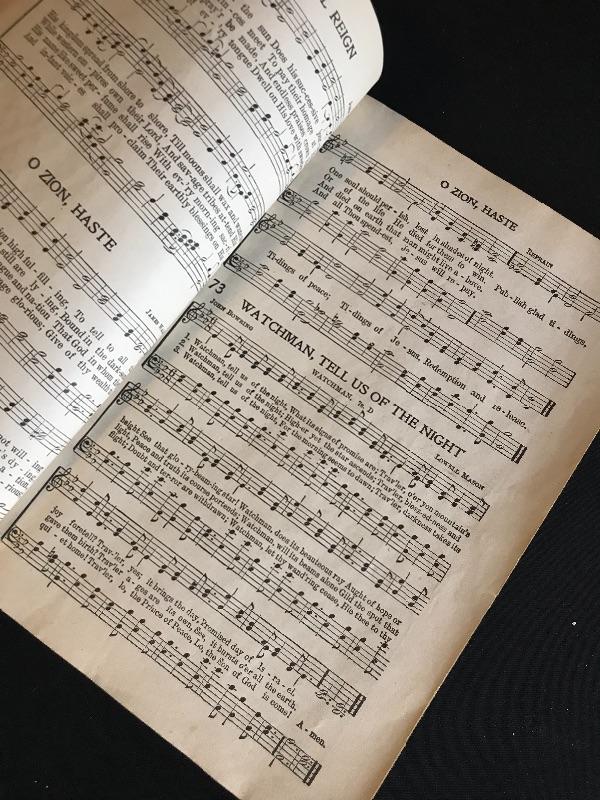 REIGN
the sun Does his suc-ces-sive
meet To pay their homage
be made, And endless praises
tongue Dwell on His love with
His kingdom spread from shore to shore, Till moons shall wax and
their Lord, And sav-age tribes at-tend
shall rise With ev-'ry morn-ing
shall pro - claim Their earthly blessings on
O ZION, HASTE
high ful - fill - ing, To tell to all
still are ly - ing, Bound in the dark-some
and na-tion That God in whom
glo-rious, Give of thy wealth
O ZION, HASTE
REFRAIN
One soul should per - ish, lost in shades of night.
Or of the life He died for them to win.
And died on earth that man might live a - bove.
And all Thou spend-est, Je - sus will re - pay.
Pub-lish glad ti - dings,
Ti-dings of peace; Ti-dings of Je - sus, Redemption and re-lease.
73
WATCHMAN, TELL US OF THE NIGHT
JOHN BOWRING
WATCHMAN. 7s, D
LOWELL MASON
1. Watchman, tell us of the night, What its signs of promise are; Trav'ler, o'er yon mountain's
2. Watchman, tell us of the night, Higher yet the star ascends; Trav'ler, blessed-ness and
3. Watchman, tell us of the night, For the morning seems to dawn; Trav'ler, darkness takes its
height See that glo - ry-beam-ing star! Watchman, does its beauteous ray Aught of hope or
light, Peace and truth its course portends; Watchman, will its beams alone Gild the spot that
flight; Doubt and ter-ror are withdrawn; Watchman, let thy wand'ring cease, Hie thee to thy
joy foretell? Trav'ler, yes, it brings the day, Promised day of Is - ra - el.
gave them birth? Trav'ler, a - ges are its own, See, it bursts o'er all the earth.
qui - et home! Trav'ler, lo, the Prince of Peace, Lo, the Son of God is come! A - men.